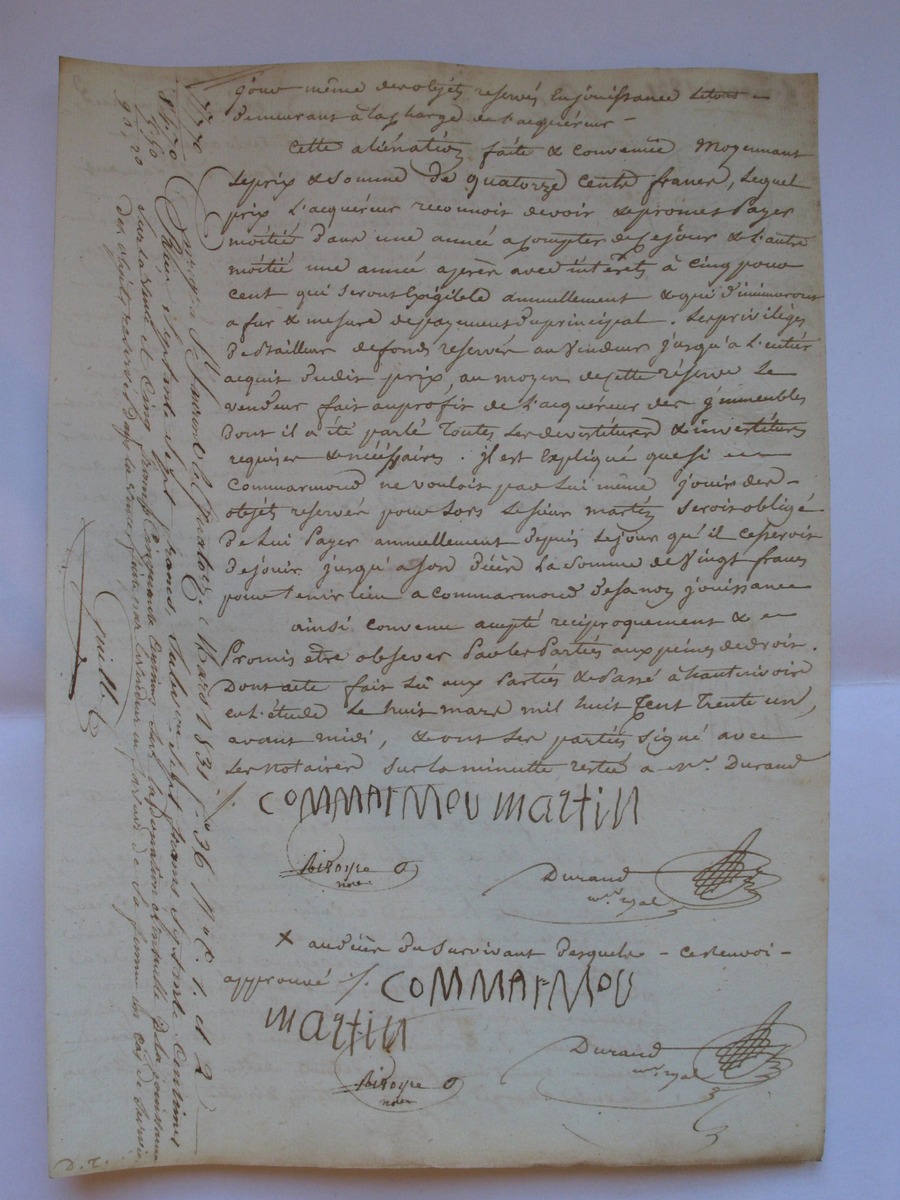 même des objets reservés en jouissance le tout
demeurant à la charge de l'acquéreur -
Cette aliénation faite & convenue moyennant
le prix & somme de quatorze cents francs, lequel
prix l'acquéreur reconnoit devoir & promet Payer
moitié dans une année a compter de ce jour & l'autre
moitié une année après avec intérêts à cinq pour
cent qui seront exigible annuellement & qui diminueront
a fur & mesure de payement du principal. Les privilèges
de bailleur de fonds reservés au vendeur jusqu'a l'entier
acquit dudit prix, au moyen de cette réserve le
vendeur fait au profit de l'acquéreur des immeubles
dont il a été parlé toutes les devestitures & investitures
requises & nécéssaires. il est Expliqué que si
Commarmoud ne vouloit pas lui même jouir des -
objets reservés pour lors le sieur martin seroit obligé
de lui Payer annuellement depuis le jour qu'il cesseroit
de jouir jusqu'a son décès La somme de vingt francs
pour tenir lieu a Commarmoud de sa non jouissance
ainsi convenu accepté réciproquement &
Promis être observer Par les Parties aux peines de droit.
Dont acte fait Lû aux Parties & Passé à haute voix
en L'étude Le huit mars mil huit Cent Trente un,
avant midi, & ont les parties signé avec
les notaires sur la minutte restée a Mr. Durand
COMMARMOU martin
Durand
nre. ryal
X au décès du survivant desquels - ce renvoi -
approuvé /. COMMARMOU
martin
Durand
nre. ryal
77,70
84,70
5,50
90,20
quatorze Mars 1831 fo 36 Ro C. 1. et 2
Reçu septante sept francs, sept francs septante centimes
sur la vente et cinq francs Cinquante Centimes sur la donation de la jouissance
des objets reservés dans la vente faite par en faveur de sa femme en cas de survie
D. T.